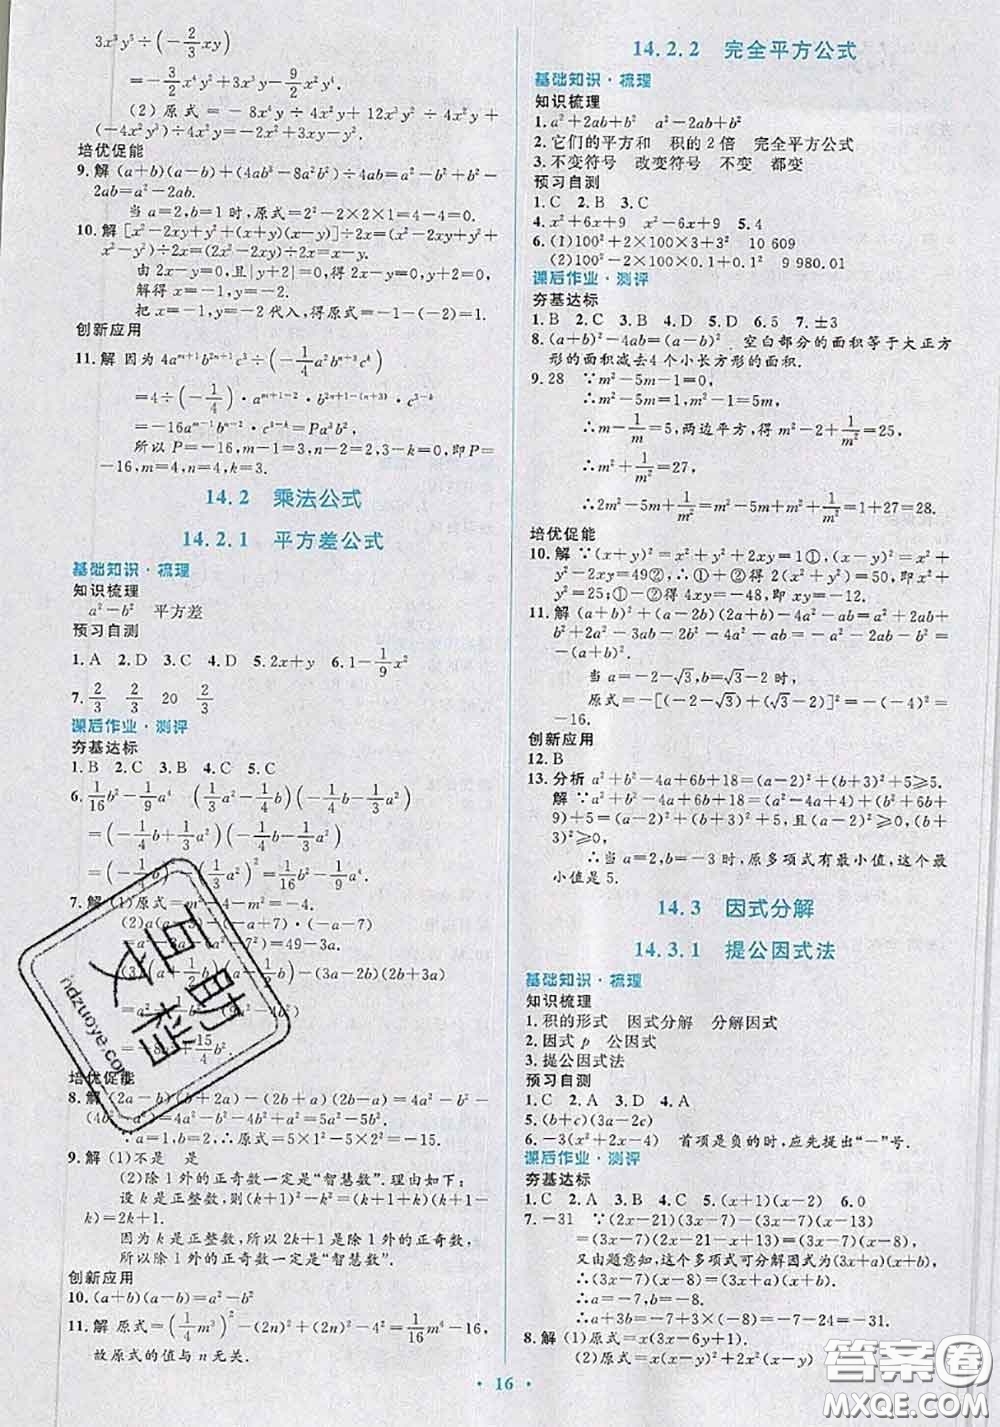 3x³y⁵÷(-2/3xy)
=-3/2x⁴y²+3x³y-9/2x²y⁴.
(2)原式=-8x⁴y÷4x²y+12x³y²÷4x²y+
(-4x²y²)÷4x²y=-2x²+3xy-y.
培优促能
9.解 (a+b)(a-b)+(4ab³-8a²b²)÷4ab=a²-b²+
b²-2ab=a²-2ab.
当a=2,b=1时,原式=2²-2×2×1=4-4=0.
10.解 [x²-2xy+y²+(x+y)(x-y)]÷2x=(x²-2xy
+y²+x²-y²)÷2x=(2x²-2xy)÷2x=x-y.
由2x-y=0,且|y+2|=0,得2x-y=0,y+2=0,
解得x=-1,y=-2.
把x=-1,y=-2代入,得原式=-1-(-2)=1.
创新应用
11.解 因为4aᵐ⁺¹b²ⁿ⁺¹c³÷(-1/4a²bⁿ⁺³cᵏ)
=4÷(-1/4)·aᵐ⁺¹⁻²·b²ⁿ⁺¹⁻⁽ⁿ⁺³⁾·c³⁻ᵏ
=-16aᵐ⁻¹bⁿ⁻²·c³⁻ᵏ=Pa³b²,
所以P=-16,m-1=3,n-2=2,3-k=0,即P=
-16,m=4,n=4,k=3.
14.2 乘法公式
14.2.1 平方差公式
基础知识·梳理
知识梳理
a²-b² 平方差
预习自测
1.A 2.D 3.C 4.D 5.2x+y 6.1-1/9x²
7.2/3 2/3 20 2/3
课后作业·测评
夯基达标
1.B 2.C 3.C 4.C 5.C
6.1/16b²-1/9a⁴ (1/3a²-1/4b)(-1/4b-1/3a²)
=(-1/4b+1/3a²)(-1/4b-1/3a²)
=(-1/4b)²-(1/3a²)²=1/16b²-1/9a⁴.
7.解 (1)原式=m²-4-m²=-4.
-a²-(a²-7²)=49-3a.
(2b+3a)(2b-3a)
培优促能
8.解 (2a-b)(b+2a)-(2b+a)(2b-a)=4a²-b²-
(4b²-a²)=4a²-b²-4b²+a²=5a²-5b².
∵a=1,b=2,∴原式=5×1²-5×2²=-15.
9.解 (1)不是 是
(2)除1外的正奇数一定是“智慧数”.理由如下:
设k是正整数,则(k+1)²-k²=(k+1+k)(k+1-
k)=2k+1.
因为k是正整数,所以2k+1是除1外的正奇数,
所以除1外的正奇数一定是“智慧数”.
创新应用
10.(a+b)(a-b)=a²-b²
11.解 原式=(1/4m³)²-(2n)²+(2n)²-4²=1/16m⁶-16,
故原式的值与n无关.
14.2.2 完全平方公式
基础知识·梳理
知识梳理
1.a²+2ab+b² a²-2ab+b²
2.它们的平方和 积的2倍 完全平方公式
3.不变符号 改变符号 不变 都变
预习自测
1.C 2.B 3.C
4.x²+6x+9 x²-6x+9 5.4
6.(1)100²+2×100×3+3² 10 609
(2)100²-2×100×0.1+0.1² 9 980.01
课后作业·测评
夯基达标
1.B 2.C 3.B 4.D 5.D 6.5 7.±3
8.(a+b)²-4ab=(a-b)². 空白部分的面积等于大正方
形的面积减去4个小长方形的面积.
9.28 ∵m²-5m-1=0,
∴m²-5m=1,m²-1=5m,
∴m-1/m=5,两边平方,得m²-2+1/m²=25,
∴m²+1/m²=27,
∴2m²-5m+1/m²=m²-5m+m²+1/m²=1+27=28.
培优促能
10.解 ∵(x+y)²=x²+y²+2xy=1①,(x-y)²=x²+
y²-2xy=49②,∴①+②得2(x²+y²)=50,即x²+
y²=25;①-②得4xy=-48,即xy=-12.
11.解 (a+b)²+(a-2b)(2a+b)-4a²=a²+2ab+
b²+2a²-4ab+ab-2b²-4a²=-a²-ab-b²
=-(a+b)².
当a=-2-√3,b=√3-2时,
原式=-[(-2-√3)+(√3-2)]²=-(-4)²=
-16.
创新应用
12.B
13.分析 a²+b²-4a+6b+18=(a-2)²+(b+3)²+5≥5.
解 ∵a²+b²-4a+6b+18=(a²-4a+4)+(b²+6b+
9)+5=(a-2)²+(b+3)²+5,(a-2)²≥0,(b+
3)²≥0,
∴当a=2,b=-3时,原多项式有最小值,这个最
小值是5.
14.3 因式分解
14.3.1 提公因式法
基础知识·梳理
知识梳理
1.积的形式 因式分解 分解因式
2.因式p 公因式
3.提公因式法
预习自测
1.C 2.A 3.D 4.A
5.(b+c)(3a-2c)
6.-3(x²+2x-7) 首项是负的时,应先提出“-”号.
课后作业·测评
夯基达标
1.C 2.A 3.A 4.C 5.(x+1)(x-2) 6.0
7.-31 ∵(2x-21)(3x-7)-(3x-7)(x-13)
=(3x-7)(2x-21-x+13)=(3x-7)(x-8),
又由题意知,这个多项式可分解因式为(3x+a)(x+b),
∴(3x-7)(x-8)=(3x+a)(x+b),
∴a=-7,b=-8,
∴a+3b=-7+3×(-8)=-7-24=-31.
8.解 (1)原式=3x(x-6y+1).
(2)原式=(x-y)+2x(x-y)
· 16 ·
互助文档
hdzuoye.com
答案圈
MXQE.COM